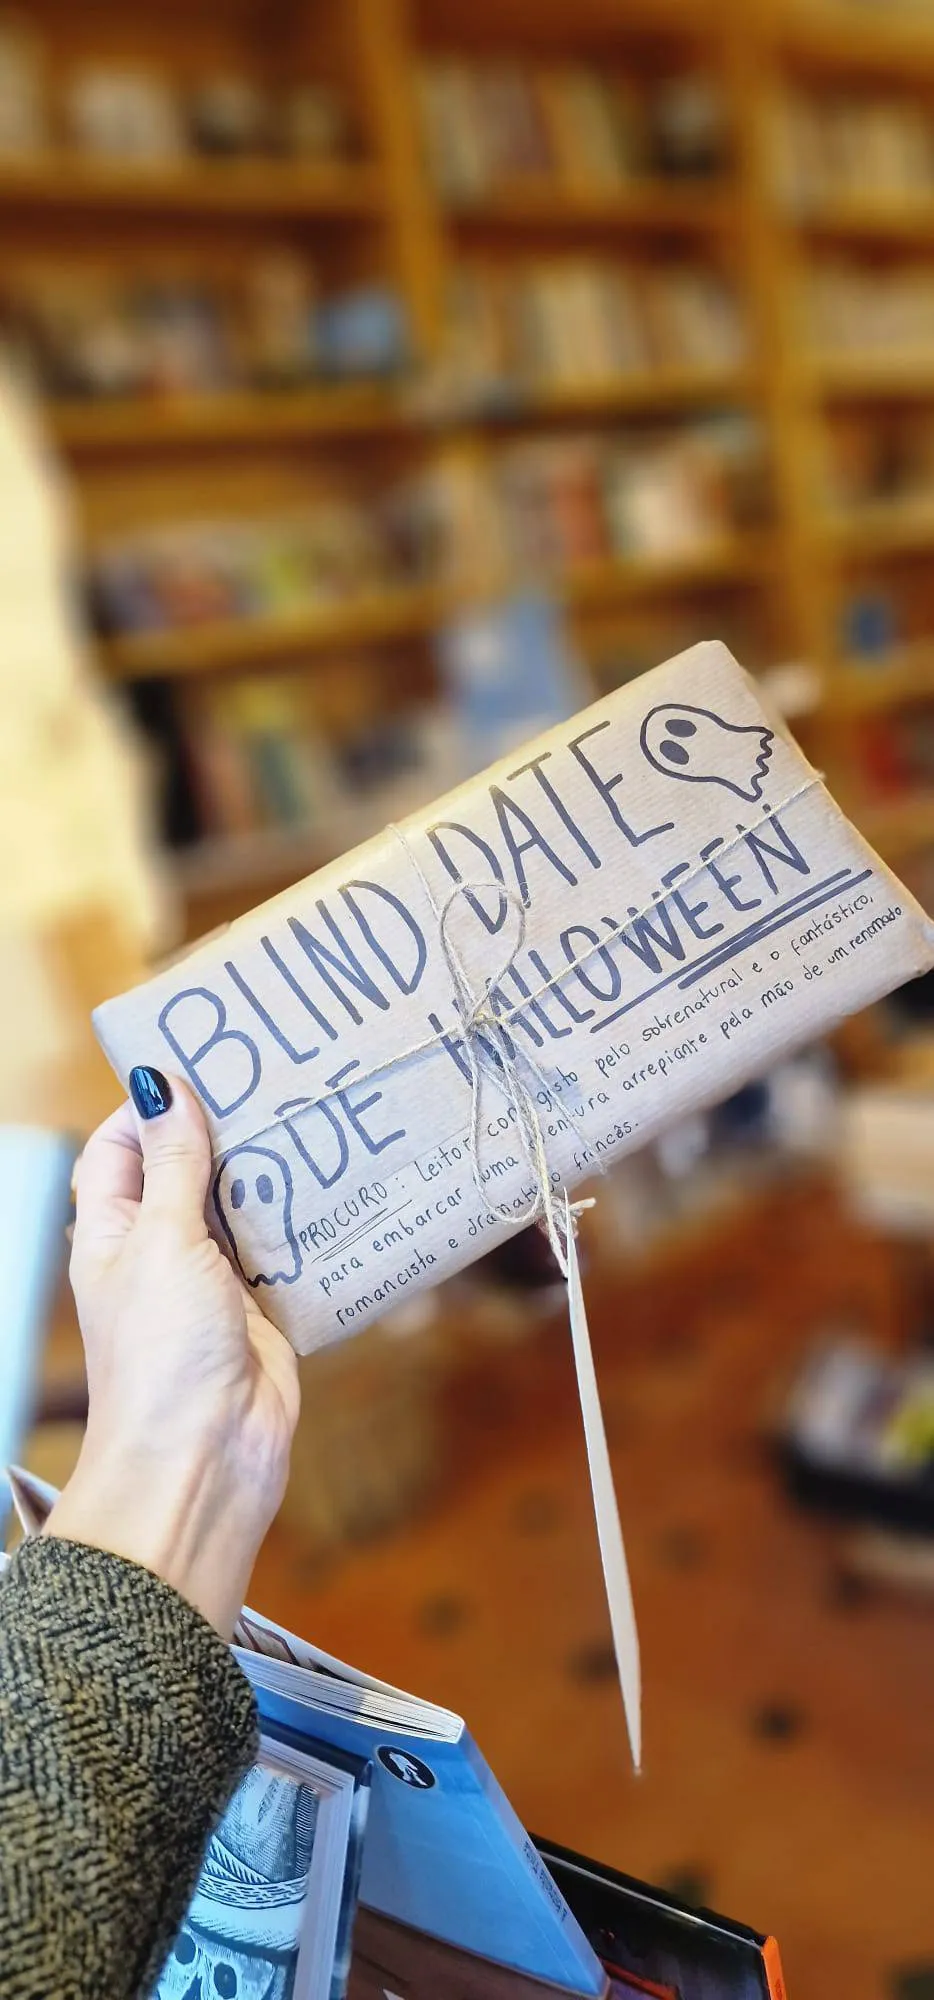 BLIND DATE
DE HALLOWEEN
PROCURO: Leitor com gosto pelo sobrenatural e o fantástico,
para embarcar numa aventura arrepiante pela mão de um renomado
romancista e dramaturgo francês.